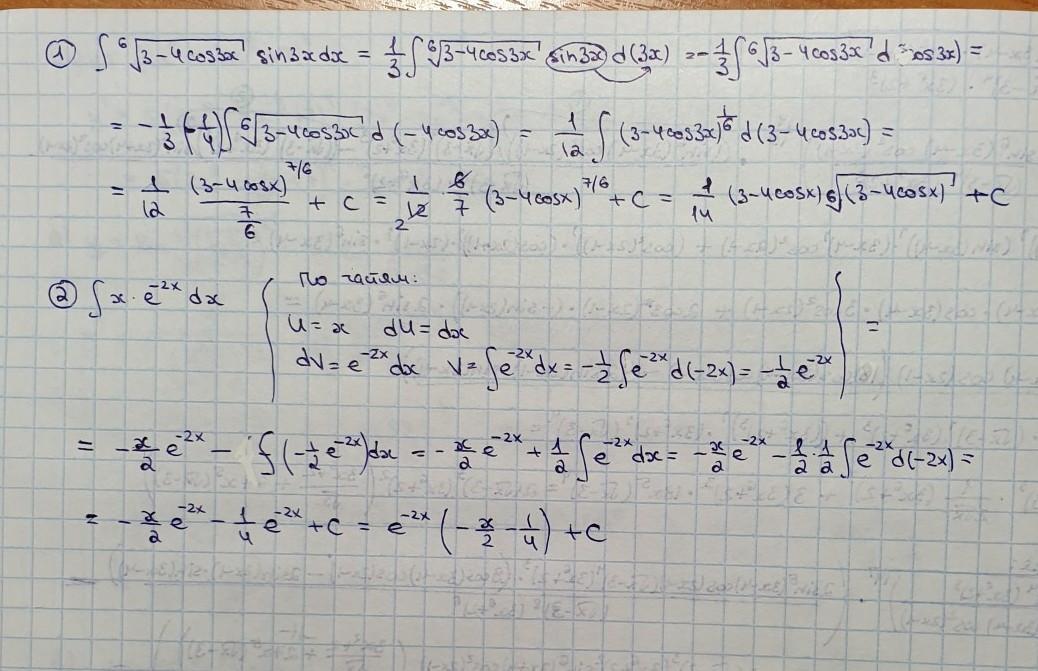 ① ∫ ⁶√(3-4cos3x) sin3xdx = 1/3 ∫ ⁶√(3-4cos3x) sin3x d(3x) = -1/3 ∫ ⁶√(3-4cos3x) d cos3x) =
= -1/3 (-1/4) ∫ ⁶√(3-4cos3x) d(-4cos3x) = 1/12 ∫ (3-4cos3x)^(1/6) d(3-4cos3x) =
= 1/12 (3-4cosx)^(7/6) / (7/6) + C = 1/12 6/7 2 (3-4cosx)^(7/6) + C = 1/14 (3-4cosx) ⁶√(3-4cosx) + C
② ∫ x·e^(-2x) dx { По частям:
U = x dU = dx
dV = e^(-2x) dx V = ∫ e^(-2x) dx = -1/2 ∫ e^(-2x) d(-2x) = -1/2 e^(-2x) } =
= -x/2 e^(-2x) - ∫ (-1/2 e^(-2x)) dx = -x/2 e^(-2x) + 1/2 ∫ e^(-2x) dx = -x/2 e^(-2x) - 1/2·1/2 ∫ e^(-2x) d(-2x) =
= -x/2 e^(-2x) - 1/4 e^(-2x) + C = e^(-2x) (-x/2 - 1/4) + C